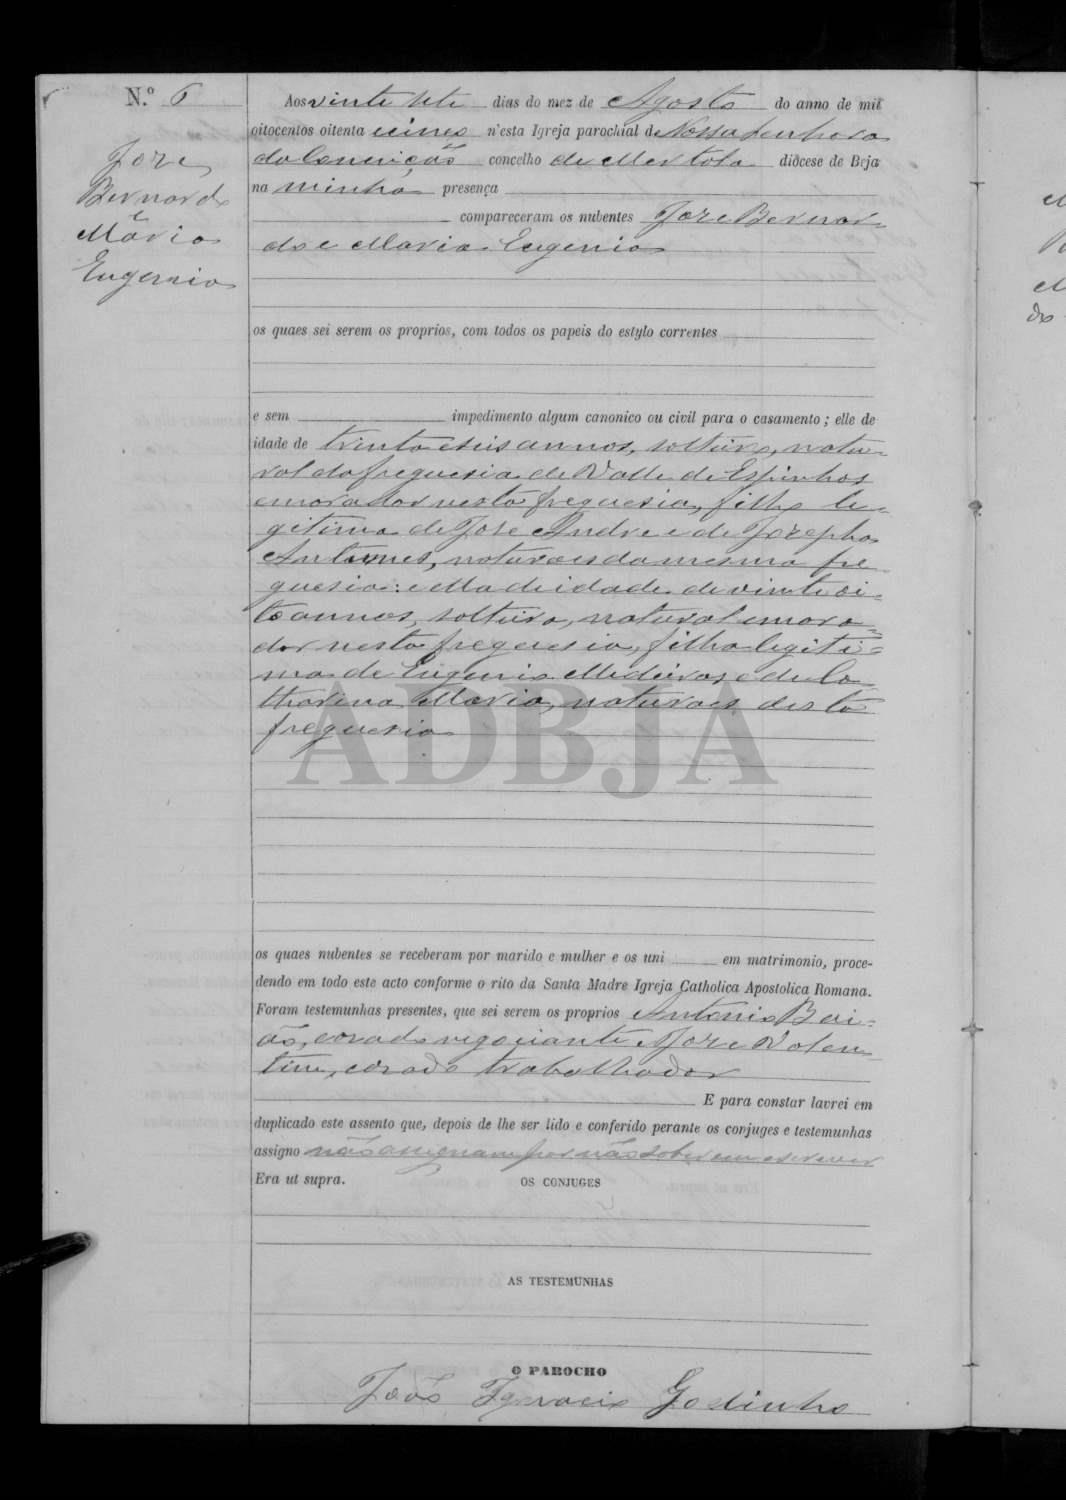 N.º 6
Aos vinte sete dias do mez de Agosto do anno de mil
oitocentos oitenta e cinco n'esta Igreja parochial de Nossa Senhora
da Conceição concelho de Mertola diocese de Beja
na minha presença
compareceram os nubentes Joze Bernar
do e Maria Eugenia
Joze
Bernardo
Maria
Eugenia
os quaes sei serem os proprios, com todos os papeis do estylo correntes
e sem impedimento algum canonico ou civil para o casamento; elle de
idade de trinta e seis annos, solteiro, natu-
ral da freguesia de Valle de Espinhos
e morador nesta freguesia, filho le-
gitimo de Jose Andre e de Jozepha
Antunes, naturaes da mesma fre-
guesia: e ella de idade de vinte oi-
to annos, solteira, natural e mora-
dor nesta freguesia, filha legiti-
ma de Eugenio Medeiros e de Ca
tharina Maria, naturaes desta
freguesia
ADBJA
os quaes nubentes se receberam por marido e mulher e os uni em matrimonio, proce-
dendo em todo este acto conforme o rito da Santa Madre Igreja Catholica Apostolica Romana.
Foram testemunhas presentes, que sei serem os proprios Antonio Bai-
ão, casado negociante e Joze Valen-
tim, casado trabalhador
E para constar lavrei em
duplicado este assento que, depois de lhe ser lido e conferido perante os conjuges e testemunhas
assigno não assignam por não saberem escrever
Era ut supra.
OS CONJUGES
AS TESTEMUNHAS
O PAROCHO
João Ignacio Godinho